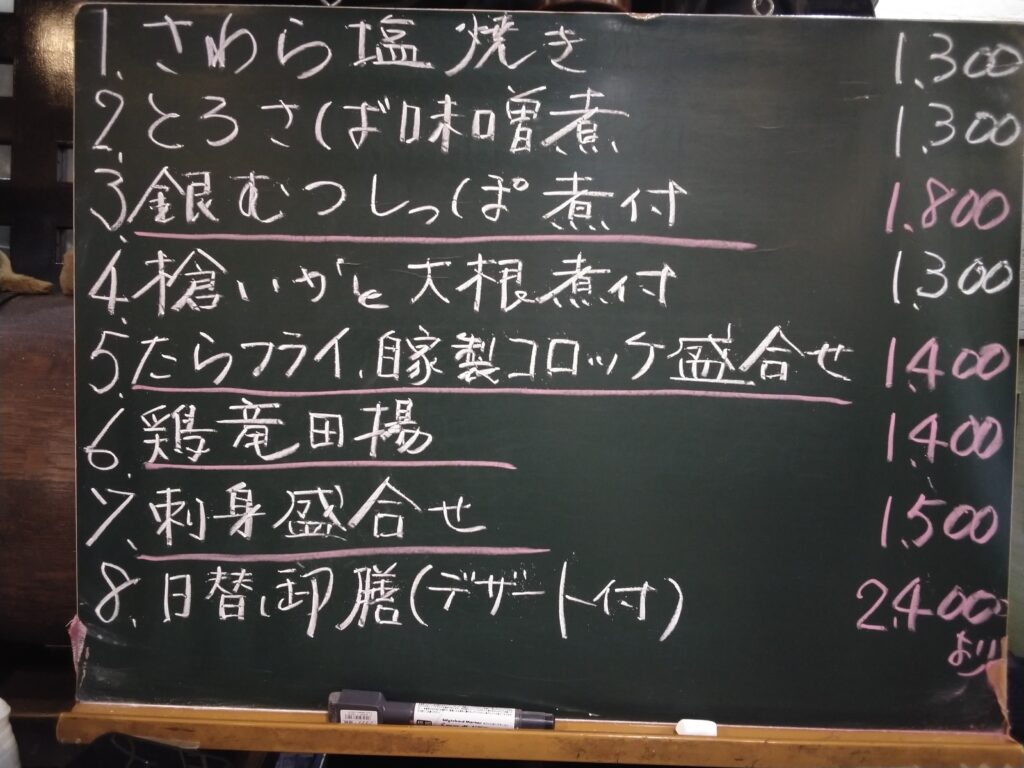 1. さわら塩焼き 1.300
2. とろさば味噌煮 1.300
3. 銀むつしっぽ煮付 1.800
4. 槍いかと大根煮付 1.300
5. たらフライ、自家製コロッケ盛合せ 1.400
6. 鶏竜田揚 1.400
7. 刺身盛合せ 1.500
8. 日替り御膳(デザート付) 2.400
より